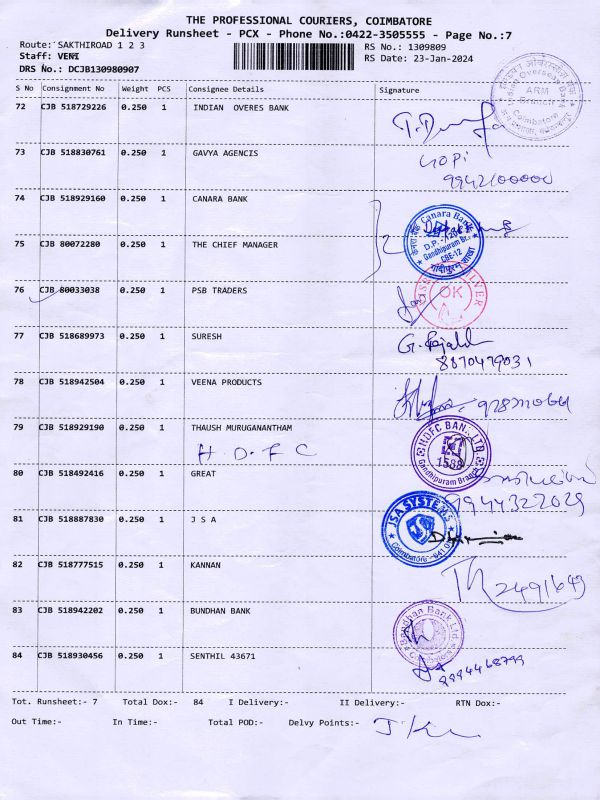 THE PROFESSIONAL COURIERS, COIMBATORE
Delivery Runsheet - PCX - Phone No.:0422-3505555 - Page No.:7
Route: SAKTHIROAD 1 2 3 RS No.: 1309809
Staff: VENI RS Date: 23-Jan-2024
DRS No.: DCJB130980907
S No Consignment No Weight PCS Consignee Details Signature
72 CJB 518729226 0.250 1 INDIAN OVERES BANK
Indian Overseas Bank ARM Branch Coimbatore
73 CJB 518830761 0.250 1 GAVYA AGENCIS GOPI
9942100000
74 CJB 518929160 0.250 1 CANARA BANK
Canara Bank
Gandhipuram Br.
CBE-12
75 CJB 80072280 0.250 1 THE CHIEF MANAGER
76 CJB 80033038 0.250 1 PSB TRADERS
OK
77 CJB 518689973 0.250 1 SURESH
8870479031
78 CJB 518942504 0.250 1 VEENA PRODUCTS
79 CJB 518929190 0.250 1 THAUSH MURUGANANTHAM
H.D.F C
HDFC BANK LTD
1588
Gandhipuram Branch
80 CJB 518492416 0.250 1 GREAT
9944322029
81 CJB 518887830 0.250 1 J S A
JSA SYSTEMS
Coimbatore - 641 0
82 CJB 518777515 0.250 1 KANNAN
2491649
83 CJB 518942202 0.250 1 BUNDHAN BANK
Bandhan Bank Ltd
Coimbatore
84 CJB 518930456 0.250 1 SENTHIL 43671
9994468799
Tot. Runsheet:- 7 Total Dox:- 84 I Delivery:- II Delivery:- RTN Dox:-
Out Time:- In Time:- Total POD:- Delvy Points:-